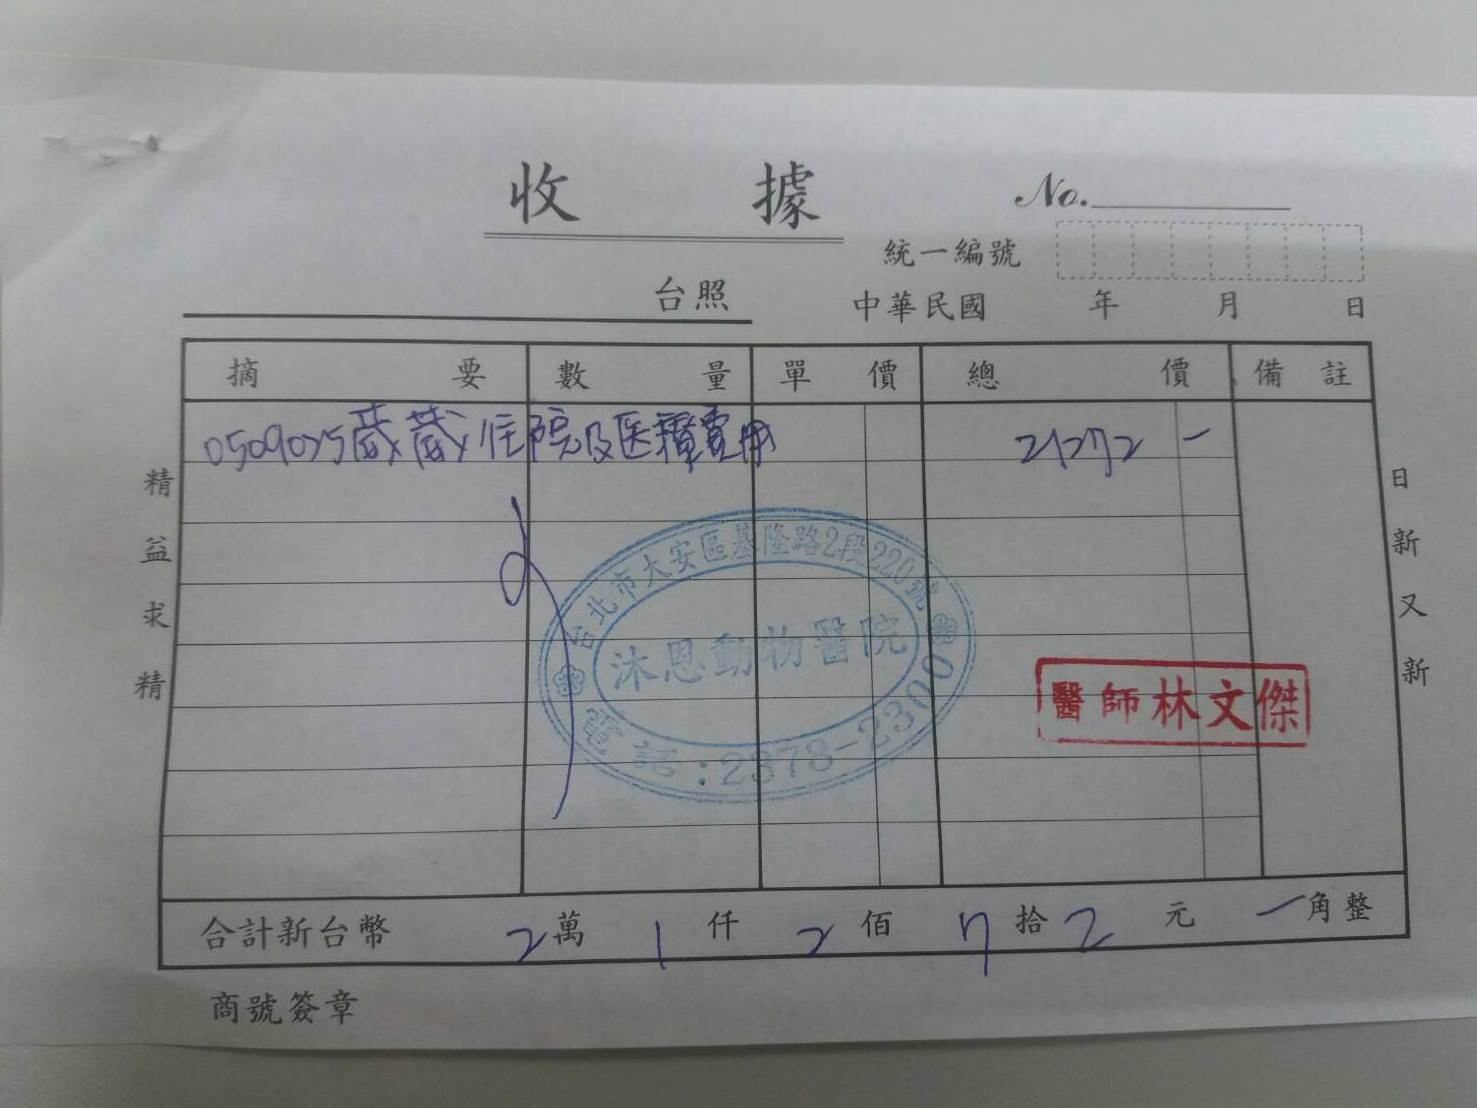 收據
No.
統一編號
台照
中華民國 年 月 日
摘要 數量 單價 總價 備註
0509025葳葳住院及医療費用 21272 -
精益求精
日新又新
台北市大安區基隆路2段220號
沐恩動物醫院
電話:2378-2300
醫師林文傑
合計新台幣 2萬 1仟 2佰 7拾 2元 -角整
商號簽章